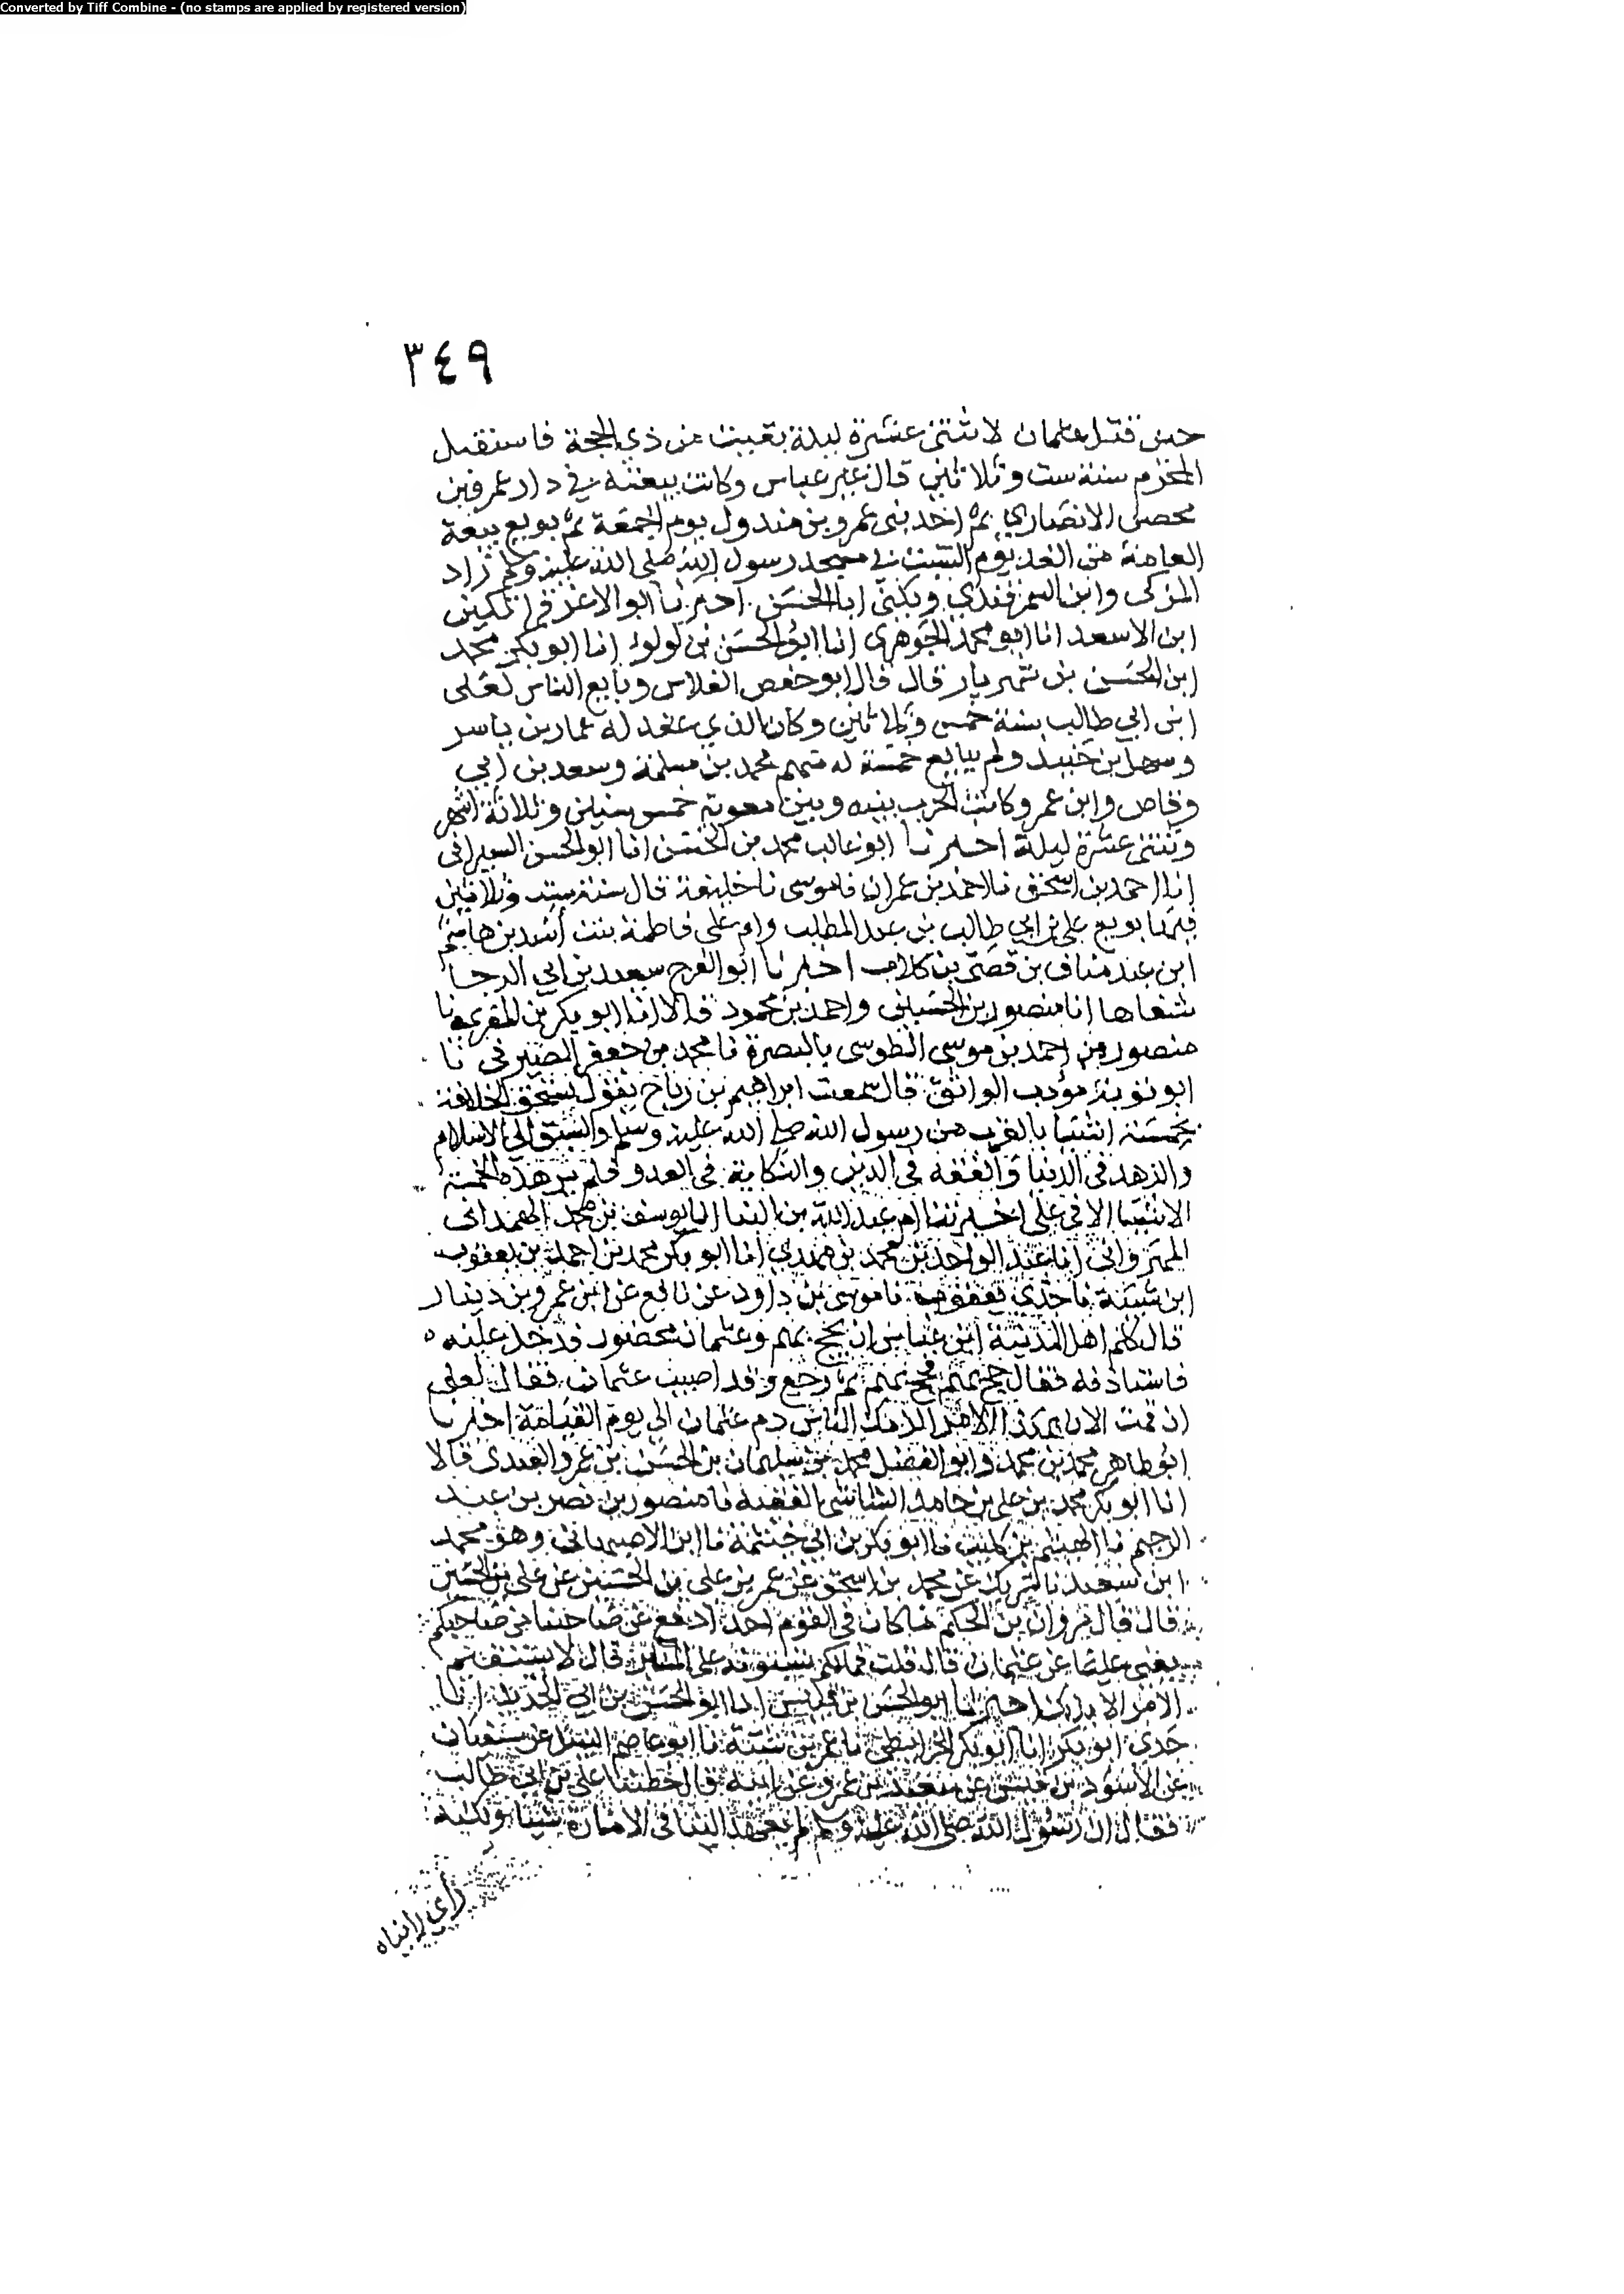 Converted by Tiff Combine - (no stamps are applied by registered version)
٣٤٩
حين قتل عثمان لاثنتي عشرة ليلة بقيت من ذي الحجة فاستقبل
المحرم سنة ست وثلاثين قال غير عباس وكانت بيعته في دار عمرو بن
محصن الانصاري ثم احد بني عمرو بن مبذول يوم الجمعة ثم بويع بيعة
العامة من الغد يوم السبت في مسجد رسول الله صلى الله عليه وسلم زاد
المزكى وابن السمرقندي ويكنى ابا الحسن اخبرنا ابو الاعز قراتكين
ابن الاسعد انا ابو محمد الجوهري انا ابو الحسن بن لولو انا ابو بكر محمد
ابن الحسين بن شهريار قال قال ابو حفص الفلاس وبايع الناس لعلى
ابن ابي طالب سنة خمس وثلاثين وكان الذي عقد له عمار بن ياسر
وسهل بن حنيف ولم يبايع خمسة له منهم محمد بن مسلمة وسعد بن ابي
وقاص وابن عمر وكانت الحرب بينه وبين معوية خمس سنين وثلاثة اشهر
وثنتى عشرة ليلة اخبرنا ابو غالب محمد بن الحسن انا ابو الحسن السيرافى
انا احمد بن اسحق نا احمد بن عمران نا موسى نا خليفة قال سنة ست وثلاثين
فيها بويع على بن ابي طالب بن عبد المطلب وام على فاطمة بنت اسد بن هاشم
ابن عبد مناف بن قصى بن كلاب اخبرنا ابو الفرج سعيد بن ابي الرجا
شفاها انا منصور بن الحسين واحمد بن محمود قالا انا ابو بكر بن المقرى نا
منصور بن احمد بن موسى الطوسى بالبصرة نا محمد بن جعفر الصيرفى نا
ابو توبة مؤدب الواثق قال سمعت ابراهيم بن رباح يقول يستحق الخلافة
بخمسة اشيا بالقرب من رسول الله صلى الله عليه وسلم والسبق الى الاسلام
والزهد فى الدنيا والفقه فى الدين والنكاية فى العدو فلم ير هذه الخمسة
الاشيا الا فى على اخبرتنا ام عبد الله بن البنا انا يوسف بن محمد الهمدانى
المهروانى انا عبد الواحد بن محمد بن مهدي انا ابو بكر محمد بن احمد بن يعقوب
ابن شيبة نا جدي يعقوب نا موسى بن داود عن نافع عن ابن عمر وبن دينار
قال كلم اهل المدينة ابن عباس ان يحج بهم وعثمان محصور فدخل عليه
فاستاذنه فقال حج بهم فحج بهم ثم رجع وقد اصيب عثمان فقال لعلى
ان قمت الان بهذا الامر الزمك الناس دم عثمان الى يوم القيامة اخبرنا
ابو طاهر محمد بن محمد وابو الفضل محمد بن سليمان بن الحسن بن عمرو العبدى قالا
انا ابو بكر محمد بن على بن حامد الشاشى الفقيه نا منصور بن نصر بن عبد
الرحيم نا الهيثم بن كليب نا ابو بكر بن ابى خيثمة نا ابن الاصبهانى وهو محمد
ابن سعيد نا شريك عن محمد بن اسحق عن عمر بن على بن الحسين عن على بن الحسين
قال قال مروان بن الحكم ما كان فى القوم احد ادفع عن صاحبنا من صاحبكم
يعنى عليا عن عثمان قال قلت فمالكم تسبونه على المنابر قال لا يستقيم
الامر الا بذلك اخبرنا ابو الحسن بن قبيس انا ابو الحسن بن ابي الحديد انا
جدى ابو بكر انا ابو بكر الخرايطى نا عمر بن شبة نا ابو عاصم النبيل عن سفيان
عن الاسود بن قيس عن سعيد بن عمرو عن ابيه قال خطبنا على بن ابى طالب
فقال ان رسول الله صلى الله عليه وسلم لم يعهد الينا فى الامارة شيئا ولكنه
رأي رايناه